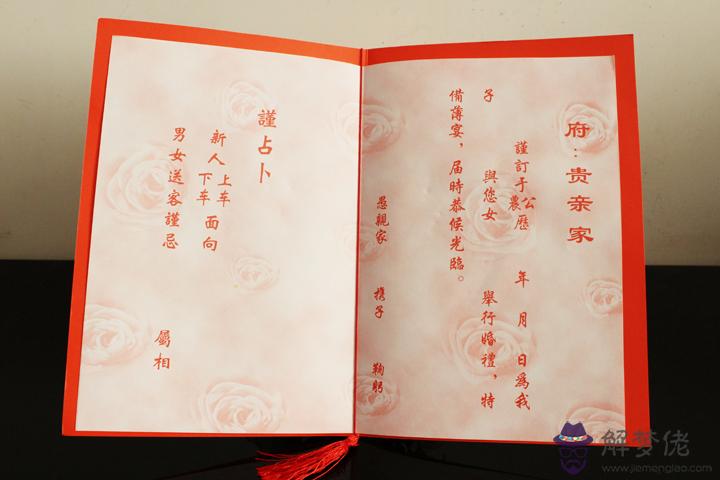 府：贵亲家
謹訂于公農歷 年 月 日爲我
子 與您女 舉行婚禮，特
備薄宴，届時恭候光臨。
愚親家 携子 鞠躬
謹占卜
新人上车下车面向
男女送客謹忌
屬相
解梦佬
www.jiemenglao.com